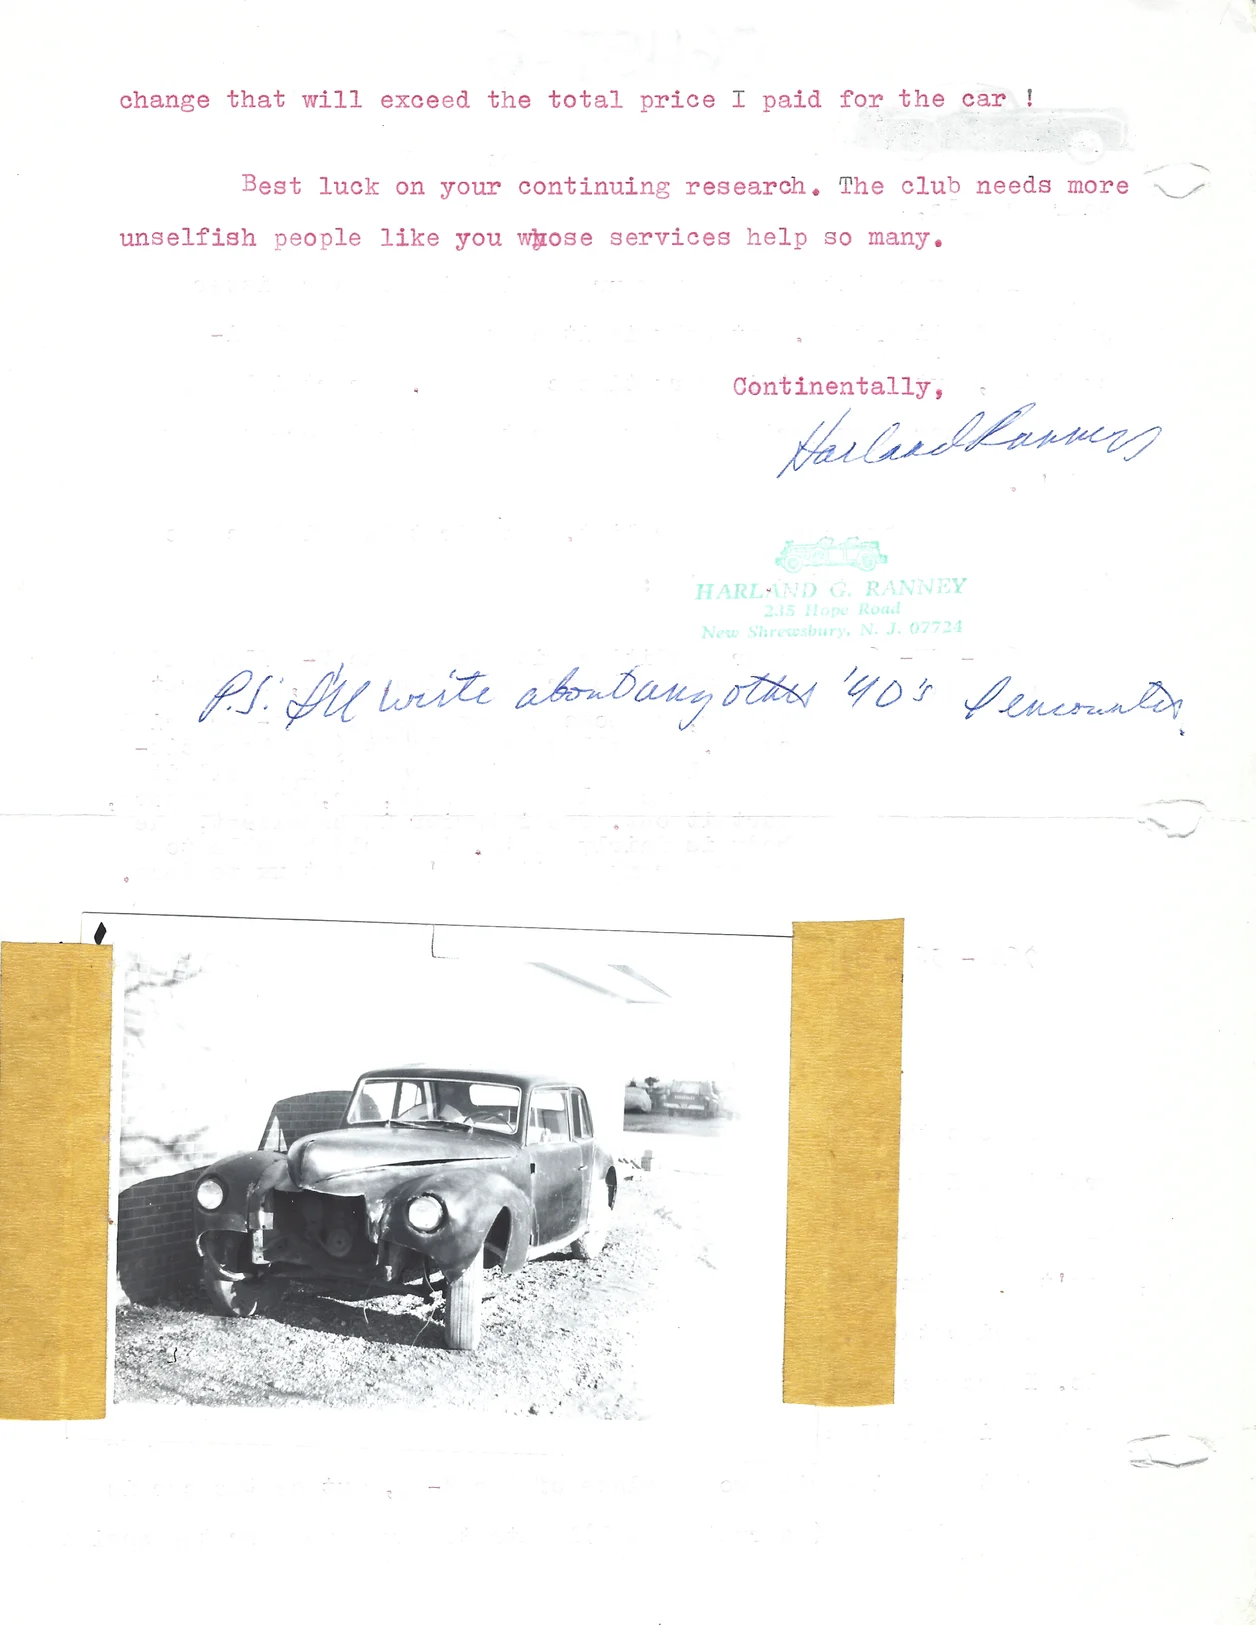 change that will exceed the total price I paid for the car !
Best luck on your continuing research. The club needs more
unselfish people like you whose services help so many.
Continentally,
Harland Ranney
HARLAND G. RANNEY
235 Hope Road
New Shrewsbury, N. J. 07724
P.S. I'll write about any other '40's I encounter.